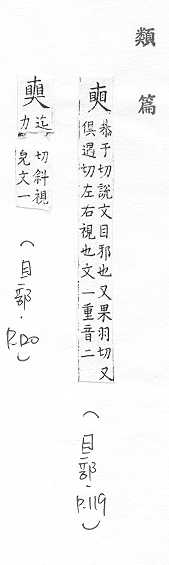 類篇
恭于切說文目邪也又果羽切又
俱遇切左右視也文一重音二
(目部.P.119)
迄切斜視
力皃文一
(目部.P.120)